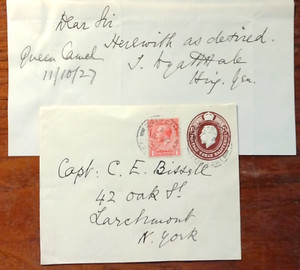 Dear Sir
Herewith as desired.
Queen Camel
11/10/27
Capt. C. E. Bissell
42 oak St.
Larchmont
N. York